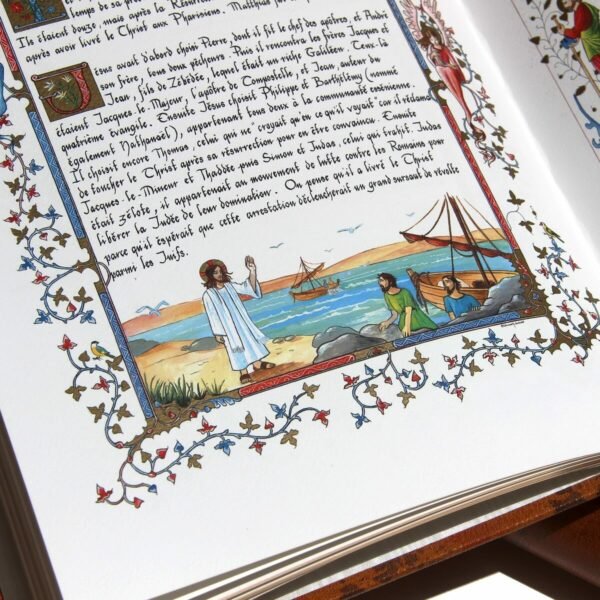 temps de sa pr
Ils étaient douze, mais après la Résurrec
après avoir livré le Christ aux Pharisiens. Matthias
Jésus avait d'abord choisi Pierre, dont il fit le chef des apôtres, et André
son frère, tous deux pêcheurs. Puis il rencontra les frères Jacques et
Jean, fils de Zébédée, lequel était un riche Galiléen. Ceux-là
étaient Jacques-le-Majeur, l'apôtre de Compostelle, et Jean, auteur du
quatrième évangile. Ensuite Jésus choisit Philippe et Barthélémy (nommé
également Nathanaël), appartenant tous deux à la communauté essénienne.
Il choisit encore Thomas, celui qui ne croyait qu'en ce qu'il voyait car il réclama
de toucher le Christ après sa résurrection pour en être convaincu. Ensuite
Jacques-le-Mineur et Thaddée puis Simon et Judas, celui qui trahit. Judas
était zélote, il appartenait au mouvement de lutte contre les Romains pour
libérer la Judée de leur domination. On pense qu'il a livré le Christ
parce qu'il espérait que cette arrestation déclencherait un grand sursaut de révolte
parmi les Juifs.